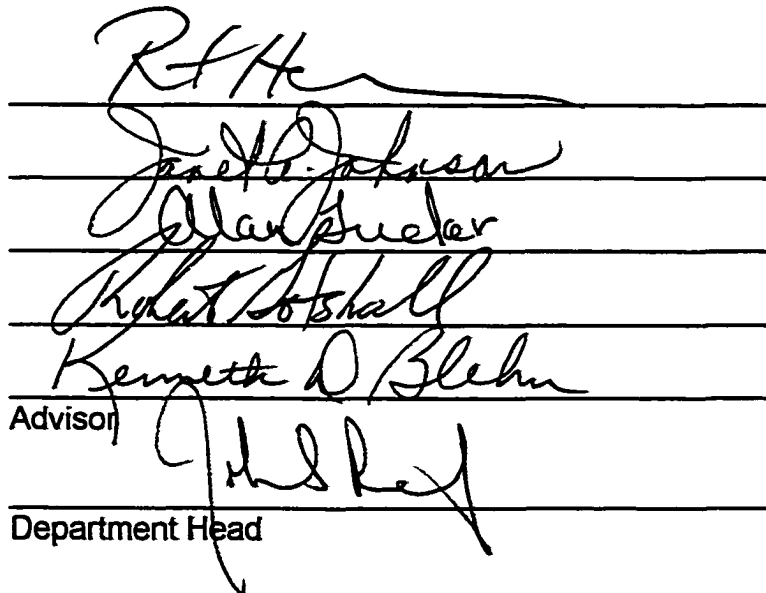 Janet Johnson
Alan Tucker
Robert Gotshall
Kenneth D Blehm
Advisor
John S Reif
Department Head